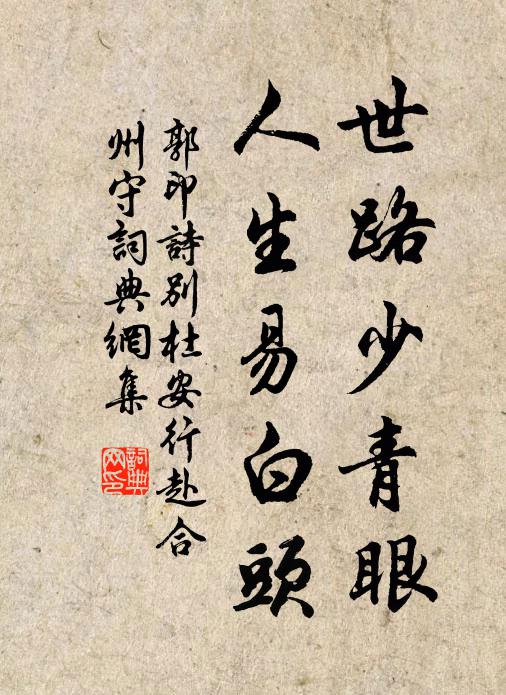 世路少青眼
人生易白頭
郭印詩別杜安行赴合
州守詞典網集
詞典
网印